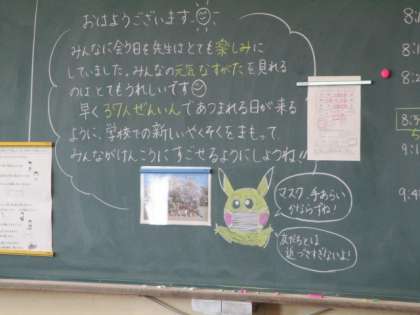 おはようございます。
みんなに会う日を先生はとても楽しみに
していました。みんなの元気なすがたを見れる
のはとてもうれしいです
早く37人ぜんいんであつまれる日が来る
ように、学校での新しいやくそくをまもって、
みんながけんこうにすごせるようにしようね!!
マスク、手あらい
かならずね!
友だちとは
近づきすぎないよ!
8:
8:
9:1
9: